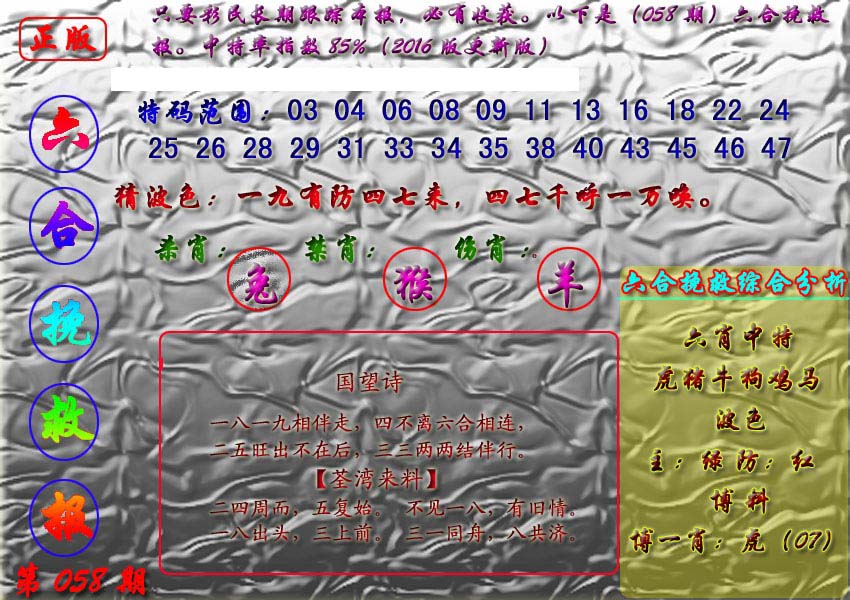 正版
只要彩民长期跟踪本报，必有收获。以下是（058期）六合挽救
报。中特率指数85%（2016版更新版）
六合挽救报
第058期
特码范围：03 04 06 08 09 11 13 16 18 22 24
25 26 28 29 31 33 34 35 38 40 43 45 46 47
猜波色：一九有防四七来，四七千呼一万唤。
杀肖：兔 禁肖：猴 伤肖：羊
国望诗
一八一九相伴走，四不离六合相连，
二五旺出不在后，三三两两结伴行。
【荃湾来料】
二四周而，五复始。 不见一八，有旧情。
一八出头，三上前。 三一同舟，八共济。
六合挽救综合分析
六肖中特
虎猪牛狗鸡马
波色
主：绿防：红
博料
博一肖：虎（07）